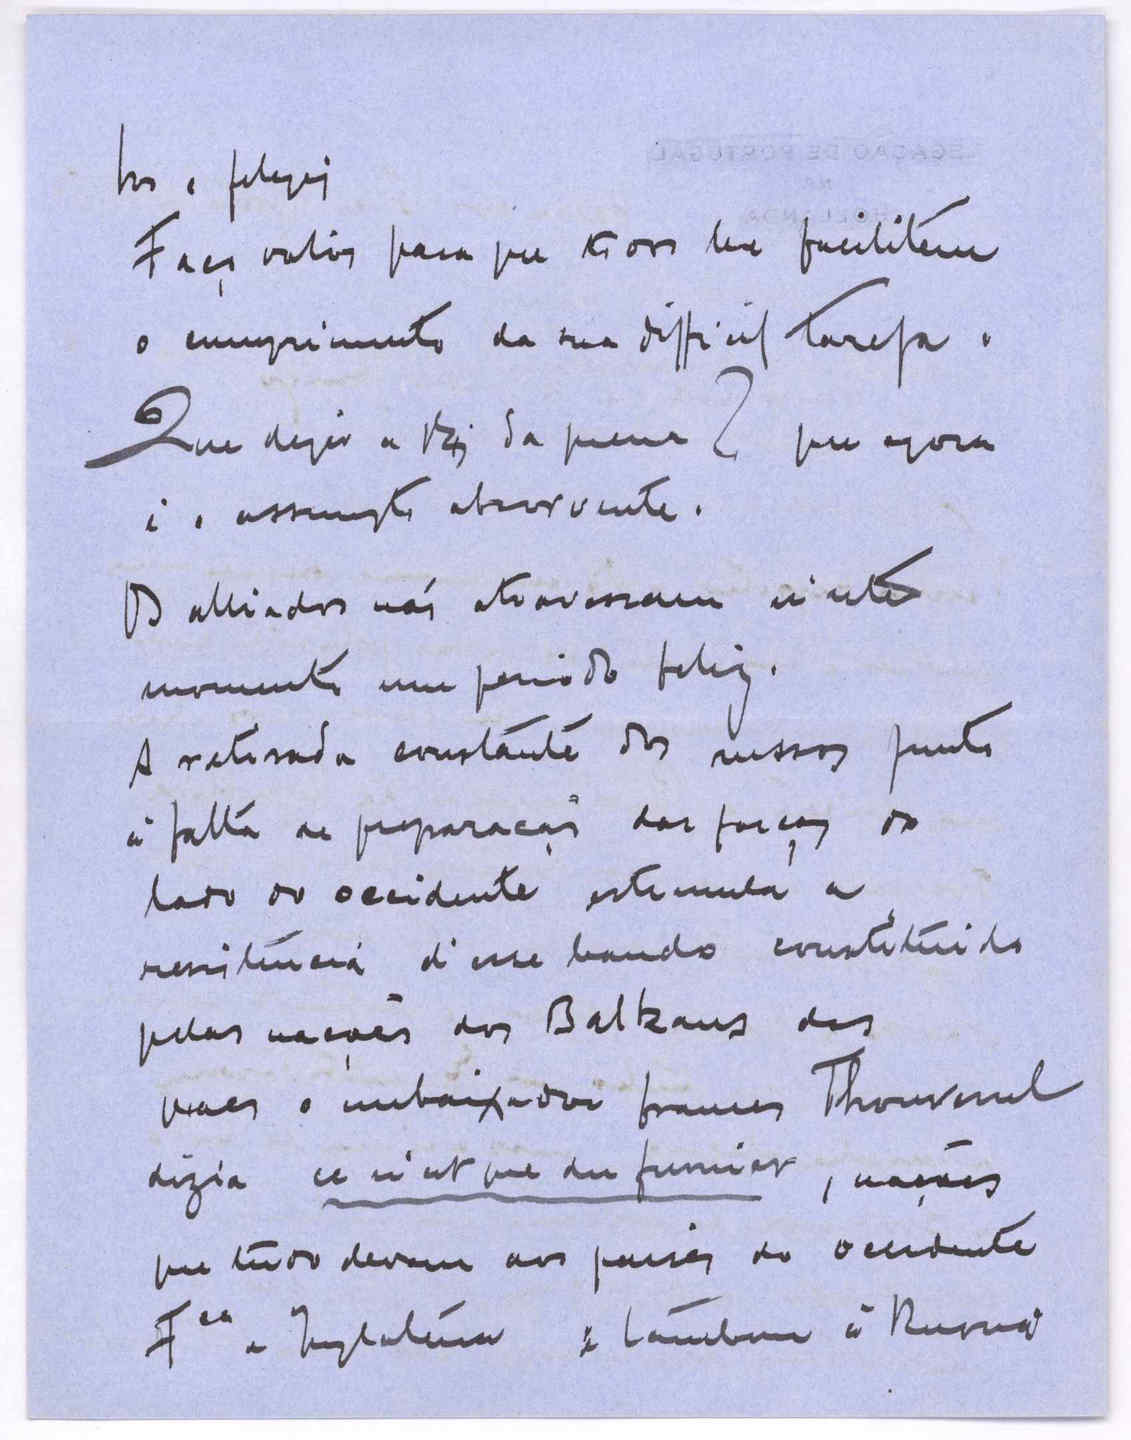 e felizes
Faço votos para que todos lhe facilitem
o cumprimento da sua difficil tarefa.
Que dizer a da guerra? que agora
é o assumpto absorvente.
Os alliados não atravessam n'este
momento um periodo feliz.
A retirada constante dos russos junto
á falta de preparação das forças do
lado do occidente estimula a
resistencia d'esse bando constituido
pelas nações dos Balkans das
quaes o embaixador frances Thouvenel
dizia ce n'est que du fumier, nações
que tudo devem aos paises do occidente
Fça e Inglaterra e tambem á Russia
LEGAÇÃO DE PORTUGAL
NA
HOLLANDA